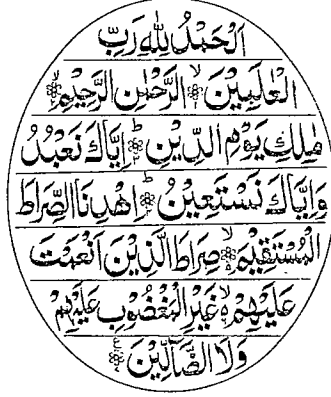 اَلْحَمْدُ لِلّٰهِ رَبِّ
الْعٰلَمِيْنَ ۙ الرَّحْمٰنِ الرَّحِيْمِ ۙ
مٰلِكِ يَوْمِ الدِّيْنِ ؕ اِيَّاكَ نَعْبُدُ
وَاِيَّاكَ نَسْتَعِيْنُ ؕ اِهْدِنَا الصِّرَاطَ
الْمُسْتَقِيْمَ ۙ صِرَاطَ الَّذِيْنَ اَنْعَمْتَ
عَلَيْهِمْ ۙ غَيْرِ الْمَغْضُوْبِ عَلَيْهِمْ
وَلَا الضَّآلِّيْنَ